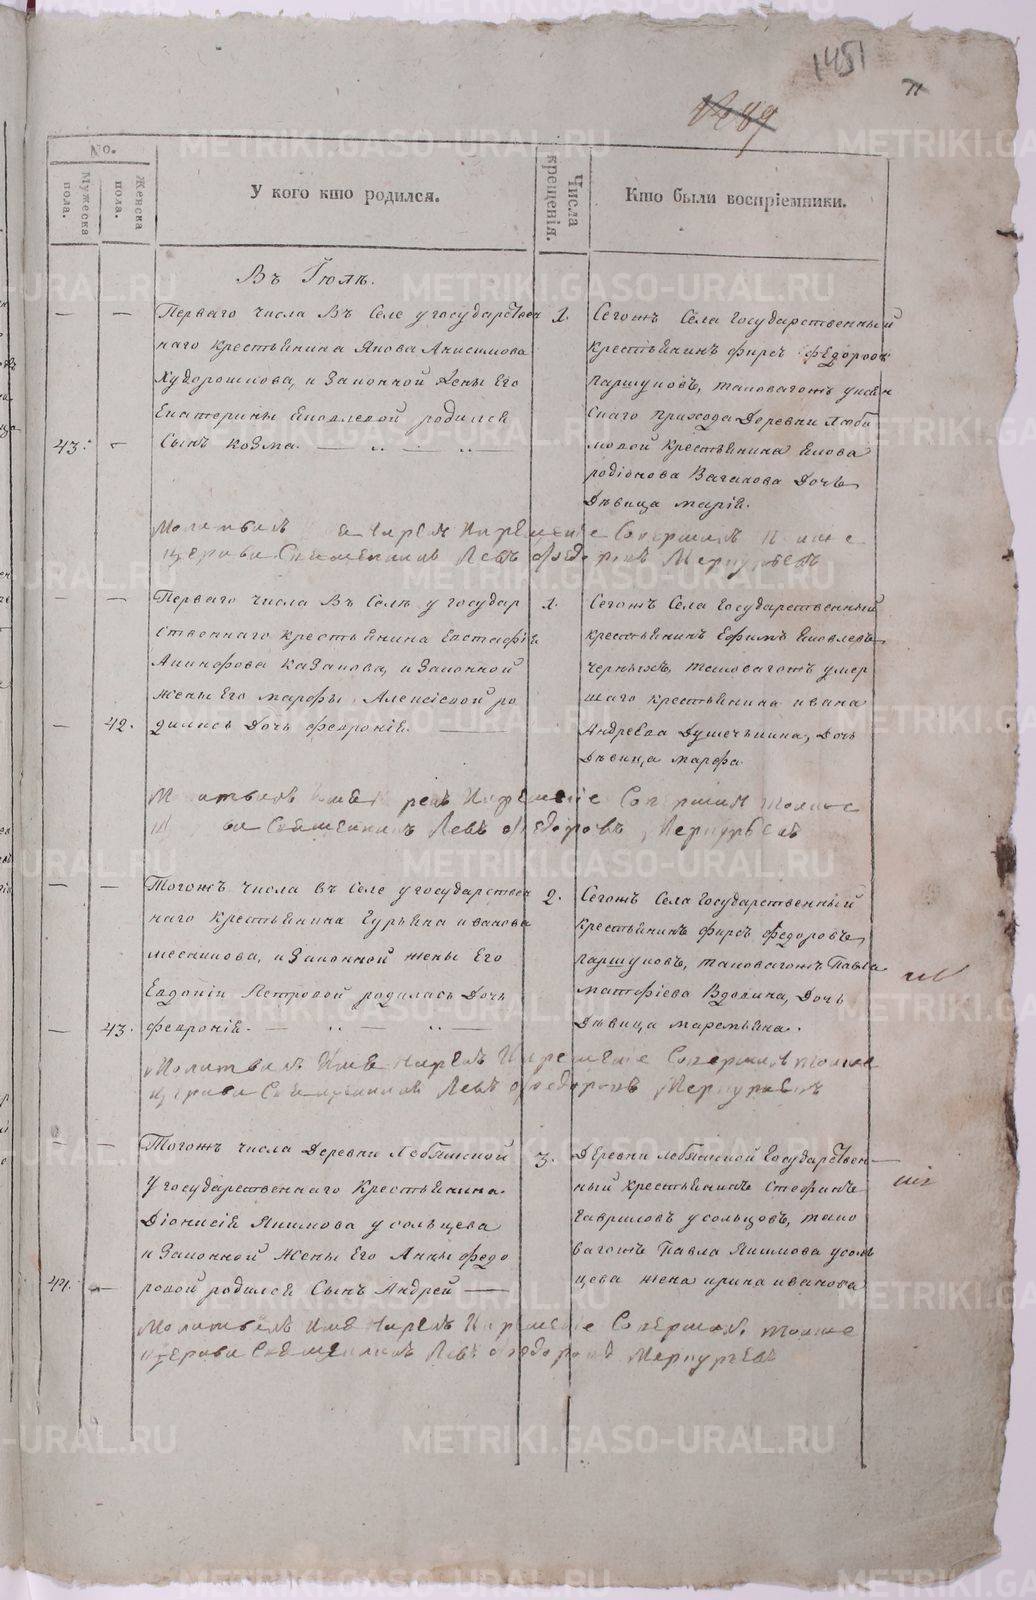 1451
71
№ 89
No.
Мужеска пола.
Женска пола.
У кого кто родился.
Числа крещенія.
Кто были воспріемники.
Въ Іюлѣ.
— — Перваго числа Въ Селе у государствен
наго крестьянина Якова Анисимова
Худорошкова, и Законной Жены Его
Екатерины Яковлевой родился
43. — Сынъ козма.
1. Сегожъ Села Государственный
крестьянинъ фирсъ Федоровъ
паршуковъ, таковагожъ
скаго прихода Деревни Люби
мовой Крестьянина Якова
родіонова Вагакова Дочь
Дѣвица марія.
Молитвилъ Имя Нарекъ И крещеніе Совершилъ тоя же
церкви Священникъ Левъ Федоровъ Меркурьевъ
— — Перваго числа Въ Селѣ у государ
ственнаго крестьянина Евстафія
Акинфова казакова, и Законной
жены Его марфы Алексіевой ро
— 42. дилась Дочь феvронія.
1. Сегожъ Села Государственный
крестьянинъ Ефимъ Яковлевъ
черныхъ, таковагожъ умер
шаго крестьянина ивана
Андреева Душечькина, Дочь
Дѣвица марфа.
Молитвилъ Имя Нарекъ И крещеніе Совершилъ тоя же
церкви Священникъ Левъ Федоровъ Меркурьевъ
— — Тогожъ числа въ Селе у государствен
наго крестьянина Гурьяна иванова
месникова, и Законной жены Его
Евдокіи Петровой родилась Дочь
— 43. феvронія.
2. Сегожъ Села Государственный
крестьянинъ фирсъ Федоровъ
паршуковъ, таковагожъ Павла
матфіева Вдовина, Дочь
Дѣвица маремьяна.
Молитвилъ Имя Нарекъ И крещеніе Совершилъ тоя же
церкви Священникъ Левъ Федоровъ Меркурьевъ
— — Тогожъ числа Деревни Лебяжской
у государственнаго Крестьянина
Діонисія Якимова усольцева
и Законной Жены Его Анны федо
44. — ровой родился Сынъ Андрей
3. Деревни лебяжской Государствен
ный крестьянинъ Стефанъ
Гавриловъ усольцовъ, тако
вагожъ Павла Якимова усоль
цева жена ирина иванова
Молитвилъ Имя Нарекъ И крещеніе Совершилъ тоя же
церкви Священникъ Левъ Федоровъ Меркурьевъ
METRIKI.GASO-URAL.RU